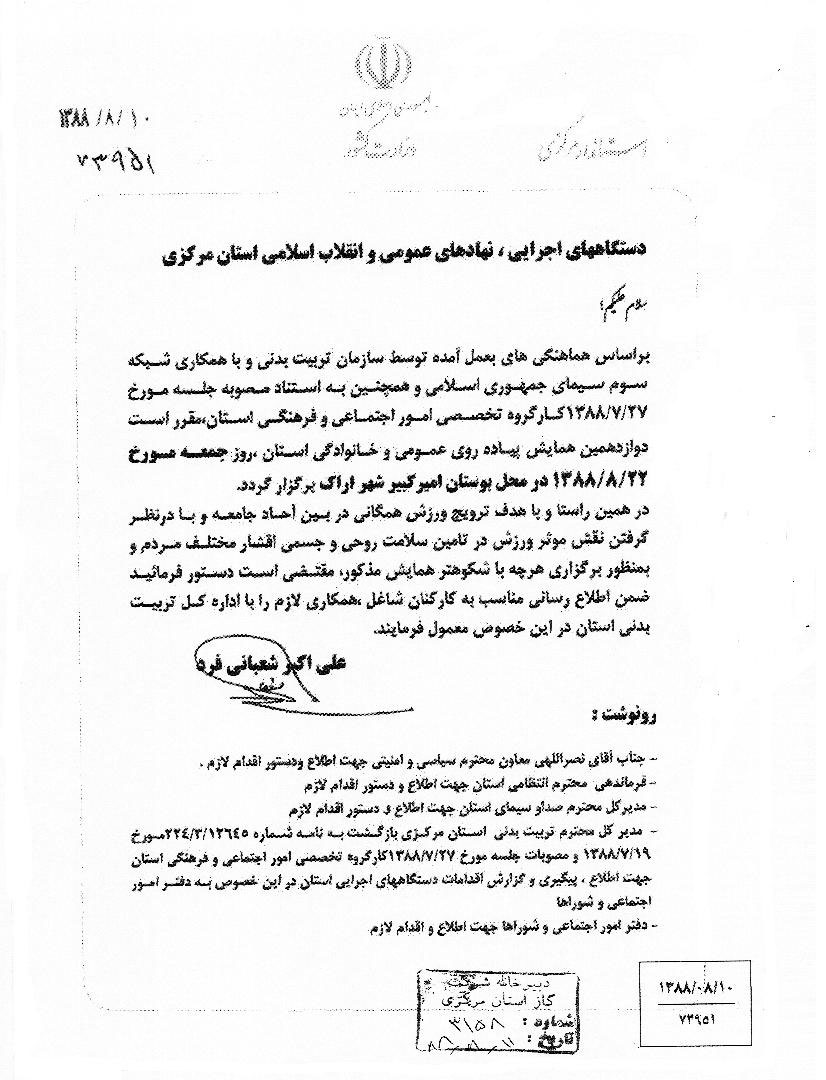 جمهوری اسلامی ایران
وزارت کشور
استاندار مرکزی
۱۳۸۸/۸/۱۰
۷۳۹۵۱
دستگاههای اجرایی ، نهادهای عمومی و انقلاب اسلامی استان مرکزی
سلام علیکم؛
براساس هماهنگی های بعمل آمده توسط سازمان تربیت بدنی و با همکاری شبکه
سوم سیمای جمهوری اسلامی و همچنین به استناد مصوبه جلسه مورخ
۱۳۸۸/۷/۲۷کارگروه تخصصی امور اجتماعی و فرهنگی استان،مقرر است
دوازدهمین همایش پیاده روی عمومی و خانوادگی استان ،روز جمعه مورخ
۱۳۸۸/۸/۲۲ در محل بوستان امیرکبیر شهر اراک برگزار گردد.
در همین راستا و با هدف ترویج ورزش همگانی در بین آحاد جامعه و با درنظر
گرفتن نقش موثر ورزش در تامین سلامت روحی و جسمی اقشار مختلف مردم و
بمنظور برگزاری هرچه با شکوهتر همایش مذکور، مقتضی است دستور فرمائید
ضمن اطلاع رسانی مناسب به کارکنان شاغل ،همکاری لازم را با اداره کل تربیت
بدنی استان در این خصوص معمول فرمایند.
علی اکبر شعبانی فرد
رونوشت :
- جناب آقای نصراللهی معاون محترم سیاسی و امنیتی جهت اطلاع ودستور اقدام لازم .
- فرماندهی محترم انتظامی استان جهت اطلاع و دستور اقدام لازم
- مدیرکل محترم صداو سیمای استان جهت اطلاع و دستور اقدام لازم
- مدیر کل محترم تربیت بدنی استان مرکزی بازگشت به نامه شماره ۲۲۴/۳/۱۲۶۴۵مورخ
۱۳۸۸/۷/۱۹ و مصوبات جلسه مورخ ۱۳۸۸/۷/۲۷کارگروه تخصصی امور اجتماعی و فرهنگی استان
جهت اطلاع ، پیگیری و گزارش اقدامات دستگاههای اجرایی استان در این خصوص به دفتر امور
اجتماعی و شوراها
- دفتر امور اجتماعی و شوراها جهت اطلاع و اقدام لازم
دبیرخانه شرکت
گاز استان مرکزی
شماره : ۳۱۵۸
تاریخ :
۱۳۸۸/۰۸/۱۰
۷۳۹۵۱